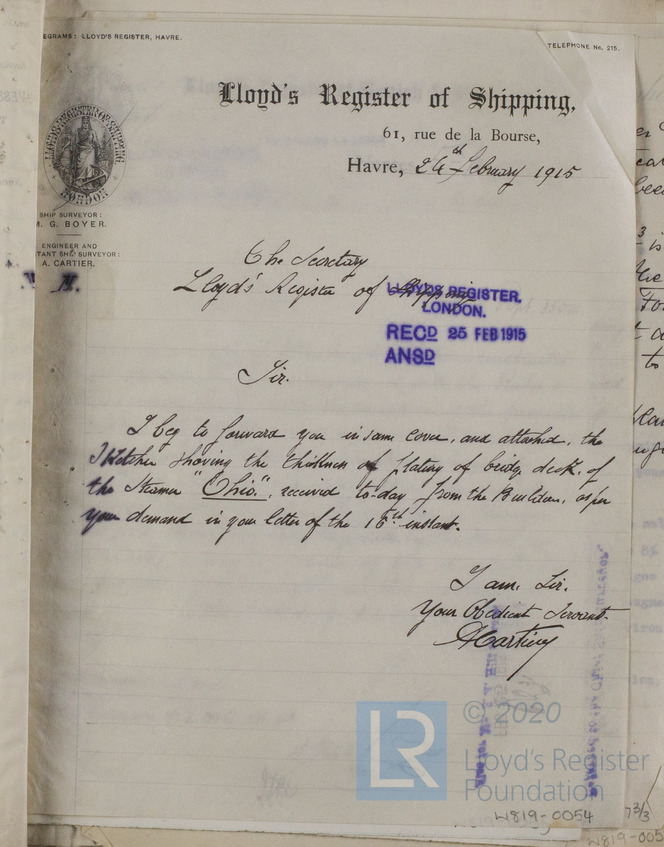 EGRAMS: LLOYD'S REGISTER, HAVRE.
TELEPHONE No. 215.
Lloyd's Register of Shipping,
61, rue de la Bourse,
Havre, 24th February 1915
LLOYD'S REGISTER OF SHIPPING
LONDON
SHIP SURVEYOR:
M. G. BOYER.
ENGINEER AND
TANT SHIP SURVEYOR:
A. CARTIER.
The Secretary
Lloyd's Register of Shipping
LLOYDS REGISTER.
LONDON.
RECD 25 FEB 1915
ANSD
Sir.
I beg to forward you in same cover, and attached, the
3 sketches shoving the thickness of plating of bridge deck, of
the steamer "Ohio", received to-day from the Builders, as per
your demand in your letter of the 16th instant.
I am, Sir.
Your Obedient Servant.
© 2020
LR
Lloyd's Register
Foundation
W819-0054
73/3
W819-005